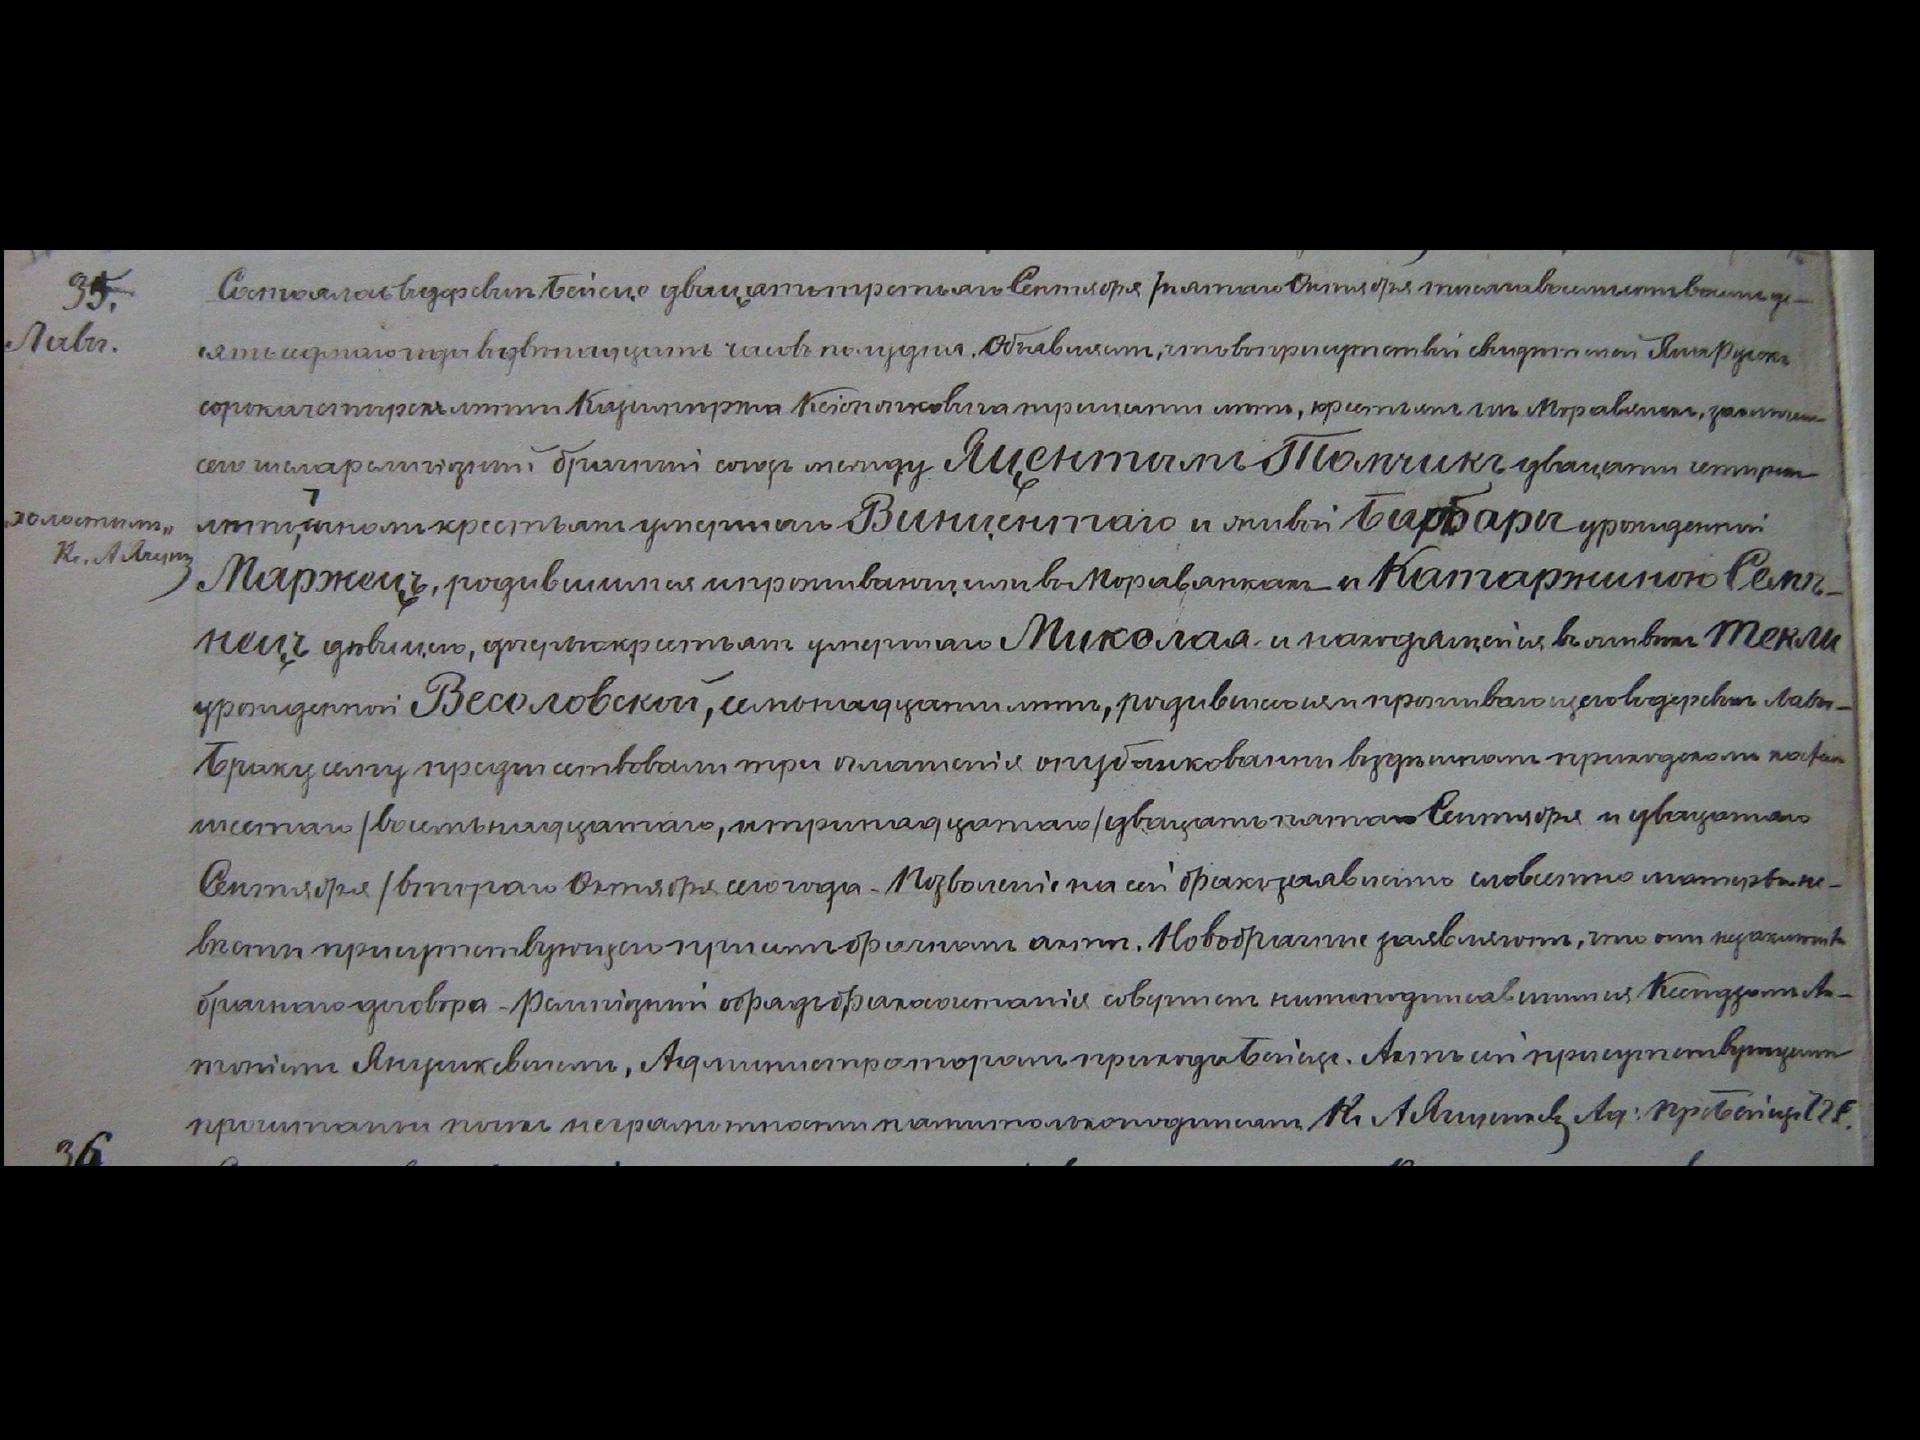 35.
Лавы.
Состоялось въ деревни Бейсце двадцать третьяго Сентября /пятаго Октября тысяча восемьсотъ восемьде-
сятъ седмаго года въ двѣнадцать часовъ полудня. Объявляемъ, что въ присутствіи свидѣтелей Яна
сорока четырехъ лѣтъ и Казимиржа тридцати лѣтъ, крестьянъ изъ Моравянекъ, заключенъ
сего числа религіозный брачный союзъ между Яцентымъ Томчикъ двадцати четырехъ
„холостымъ„
лѣтъ, сыномъ крестьянъ умершаго Винцентаго и живой Барбары урожденной
Кс. А Януш
Маржецъ, родившимся и проживающимъ въ Моравянкахъ и Катаржиною Семѣ-
нецъ дѣвицею, дочерью крестьянъ умершаго Миколая и находящейся въ живыхъ Текли
урожденной Весоловской, семьнадцати лѣтъ, родившеюся и проживающею въ деревни Лавы-
Браку сему предшествовали три оглашенія опубликованны въ здѣшномъ приходскомъ костелѣ
шестаго /восемьнадцатаго, и тринадцатаго /двадцать пятаго Сентября и двадцатаго
Сентября /втораго Октября сего года - Позволеніе на сей бракъ заявлено словестно матерью не-
вѣсты присутствующею при семъ брачномъ актѣ. Новобрачные заявляютъ, что они не заключали
брачнаго договора - Религіозный обрядъ бракосочетанія совершенъ нижеподписавшимся Ксендзомъ Ан-
тоніемъ Янушкевичемъ, Администраторомъ прихода Бейсце. Актъ сей присутствующимъ
прочитанный по ихъ неграмотности нами только подписанъ Кс А Янушкев Ад: пр Бейсце
36